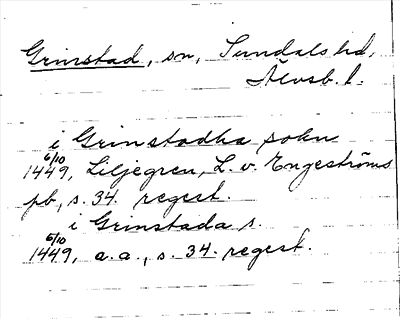 Grinstad, sn, Sundals hd,
Älvsb. l.
i Grinstadha sokn
6/10
1449, Liljegren, L. v. Engeströms
pb, s. 34. regest.
i Grinstada s.
6/10
1449, a.a., s. 34. regest.